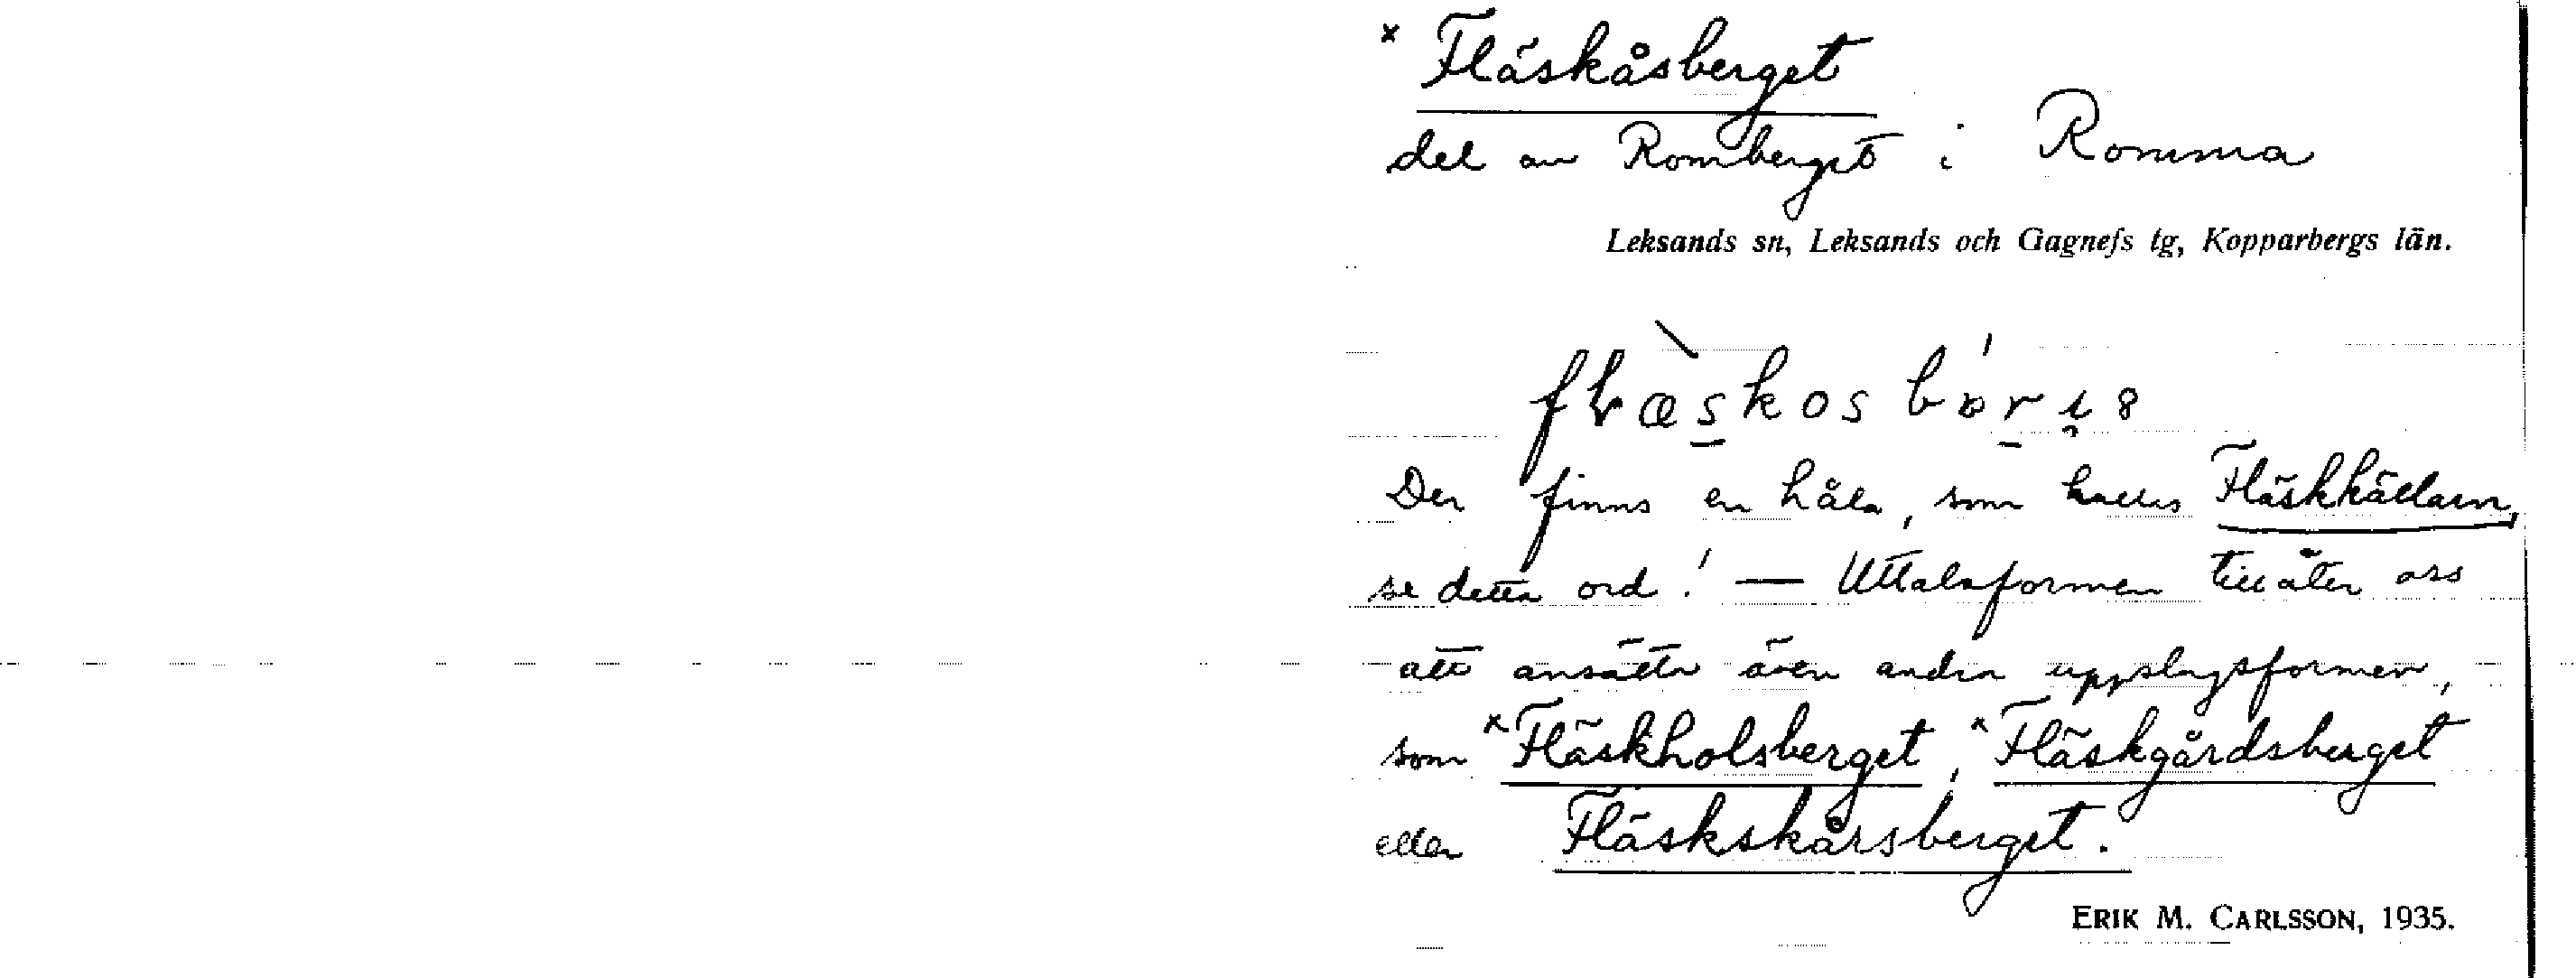 × Fläskåsberget
del av Romberget i Romma
Leksands sn, Leksands och Gagnefs tg, Kopparbergs län.
Der finns en håla, som kallas Fläskkällarn,
se detta ord! — Uttalsformen tillåter oss
att ansätta även andra uppslagsformer,
som ×Fläskholsberget, ×Fläskgårdsberget
eller Fläskskårsberget.
ERIK M. CARLSSON, 1935.